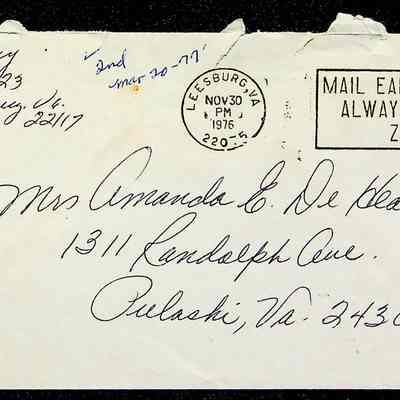 23
Va.
22117
"2nd
mar 20-77"
LEESBURG, VA
NOV 30
PM
1976
220 5
MAIL EA
ALWAY
Z
Mrs Amanda E. De Hea
1311 Randolph Ave.
Pulaski, Va. 243